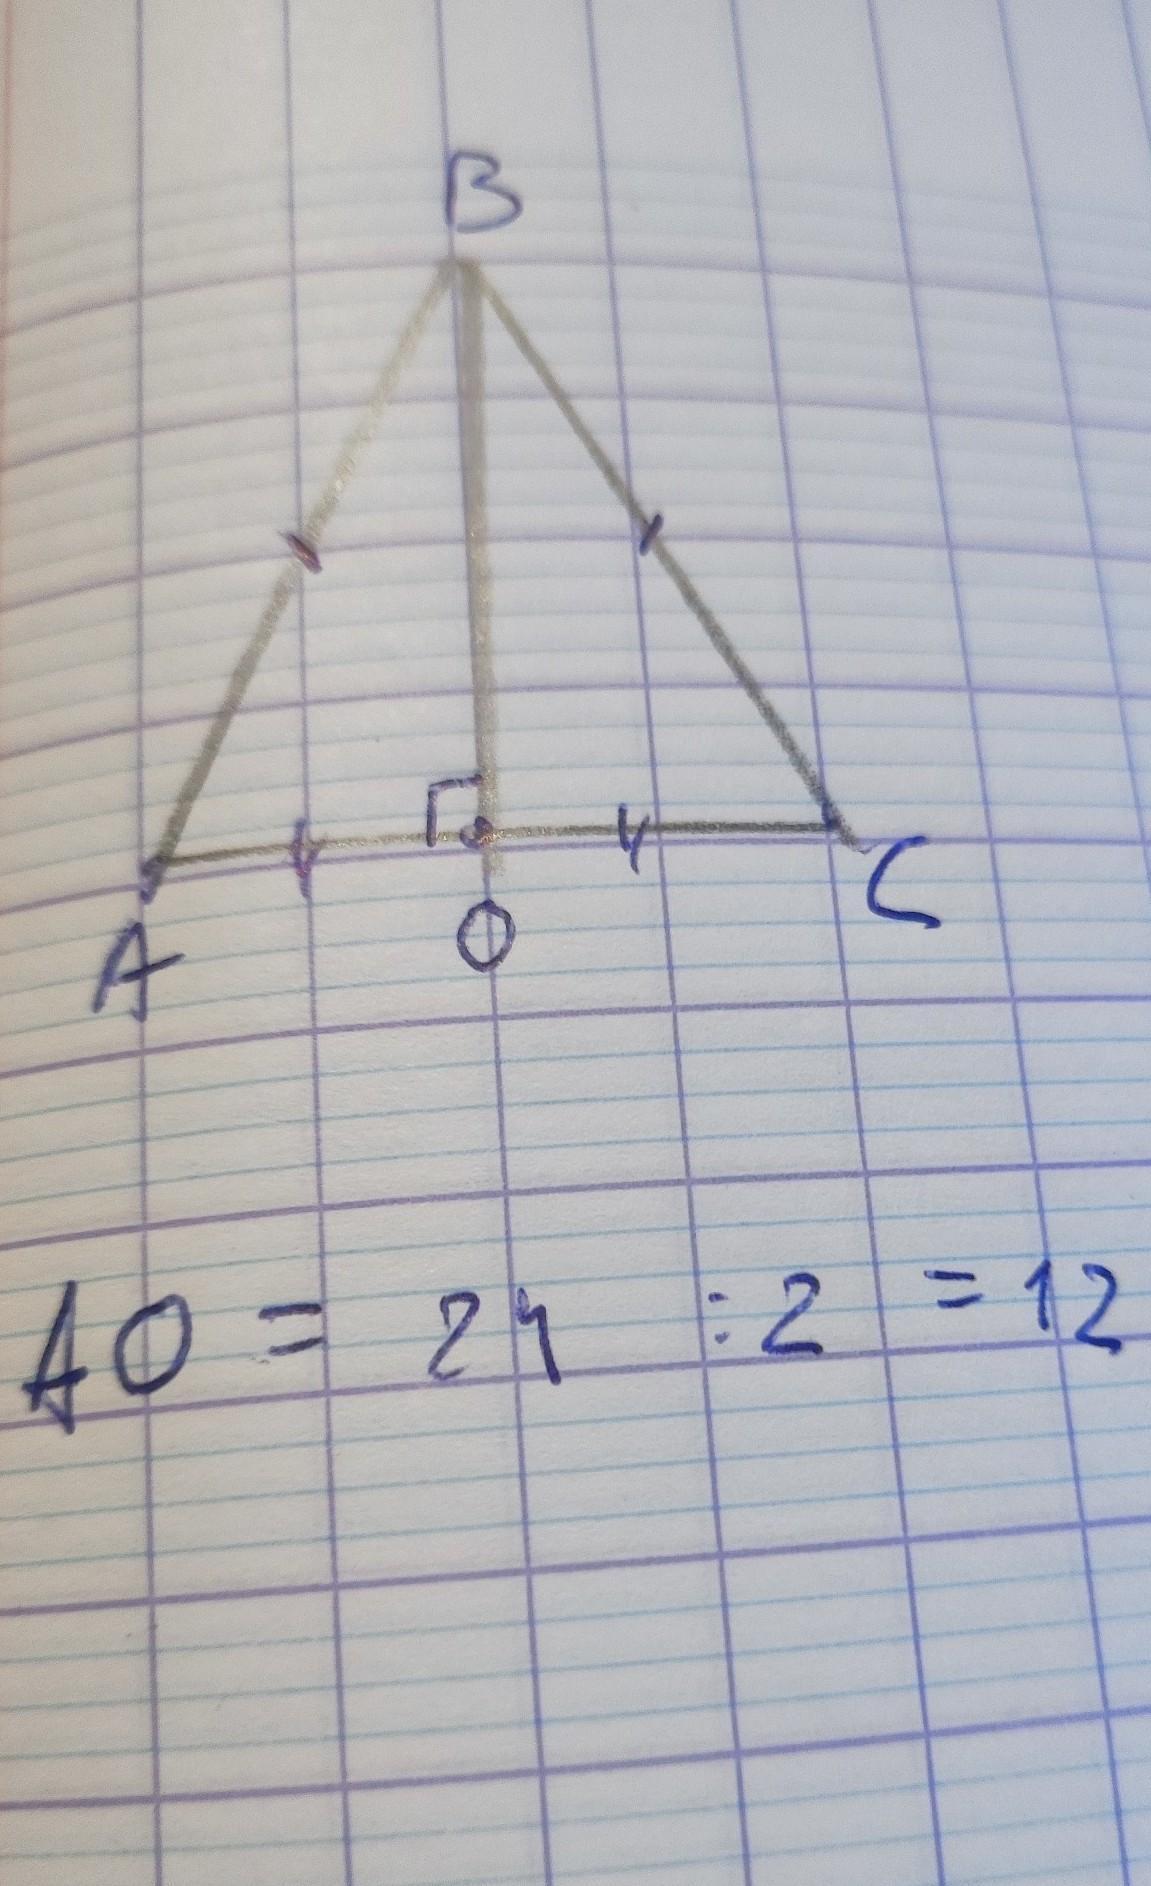 B
A O C
AO = 24 : 2 = 12